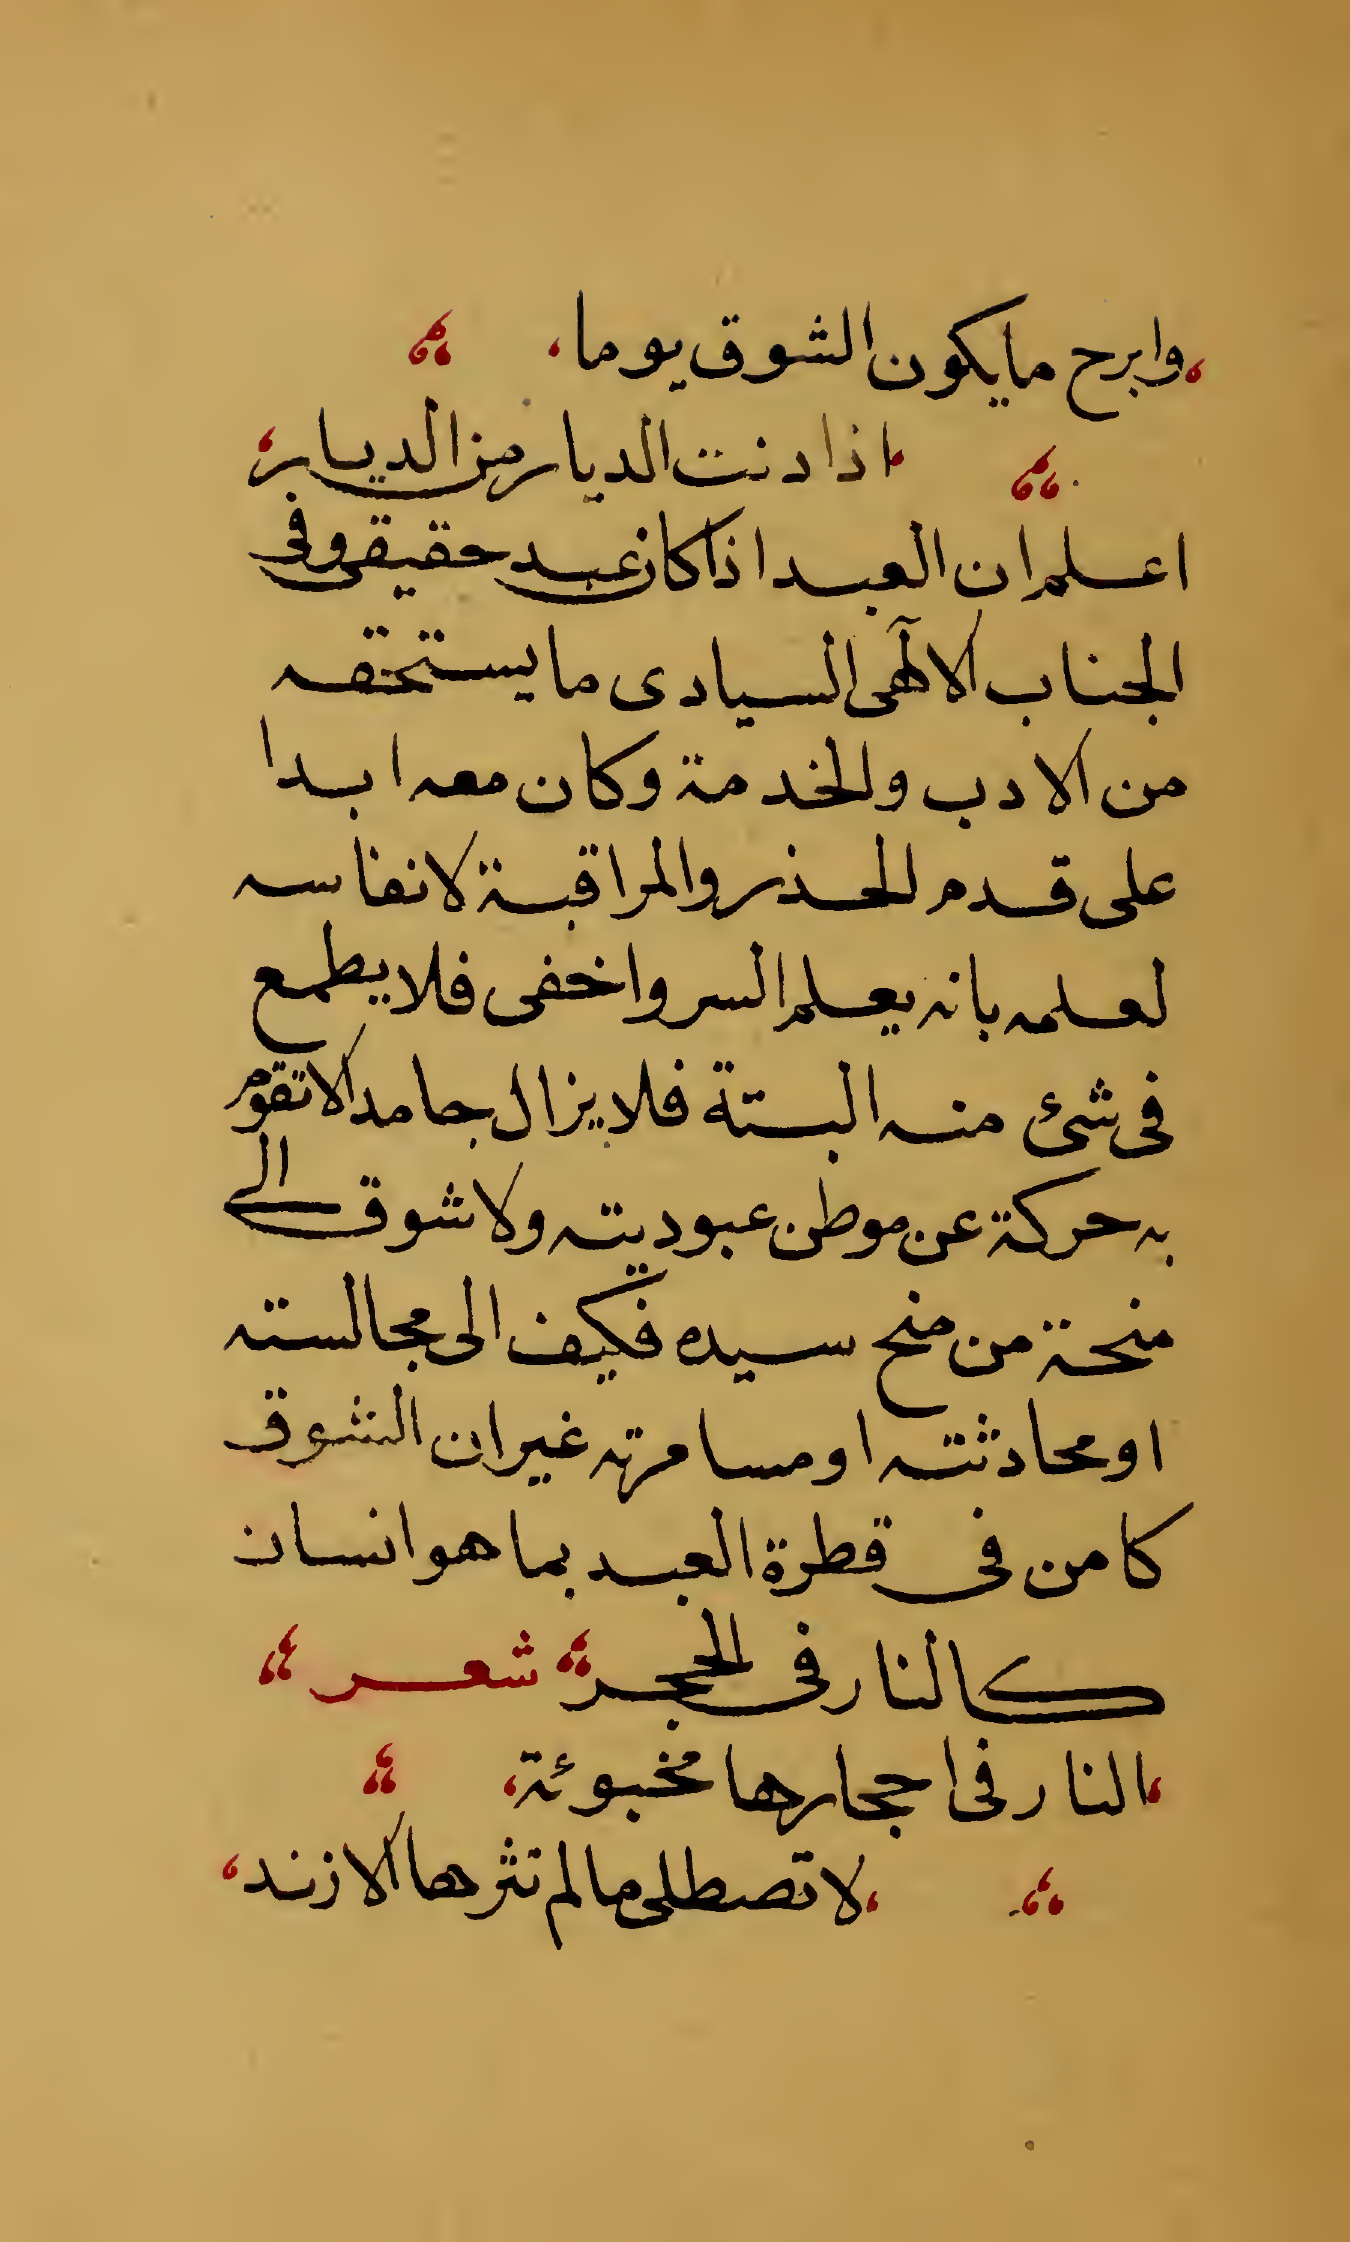 وابرح مايكون الشوق يوما
اذا دنت الديار من الديار
اعلم ان العبد اذا كان عبد حقيقى وفى
الجناب الالٓهى السيادى ما يستحقه
من الادب والخدمة وكان معه ابدا
على قدم الحذر والمراقبة لانفاسه
لعلمه بانه يعلم السر واخفى فلا يطمع
فى شئ منه البتة فلا يزال جامدا لا تقوم
به حركة عن موطن عبوديته ولا شوق الى
منحة من منح سيده فكيف الى مجالسته
او محادثته او مسامرته غير ان الشوق
كامن فى قطرة العبد بما هو انسان
كالنار فى الحجر شعر
النار فى احجارها مخبوئة
لا تصطلى ما لم تثرها الازند